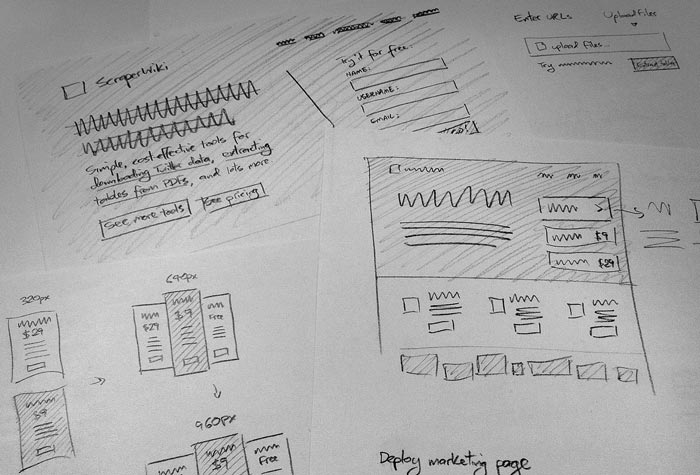 ScraperWiki
Simple, cost effective tools for
downloading Twitter data, extracting
tables from PDFs, and lots more
See more tools
See pricing
Try it for free:
NAME:
USERNAME:
EMAIL:
Enter URLs
Upload Files
upload files...
Try
$9
$29
320px
$29
$9
640px
$29
$9
Free
960px
$9
Free
Deploy marketing page